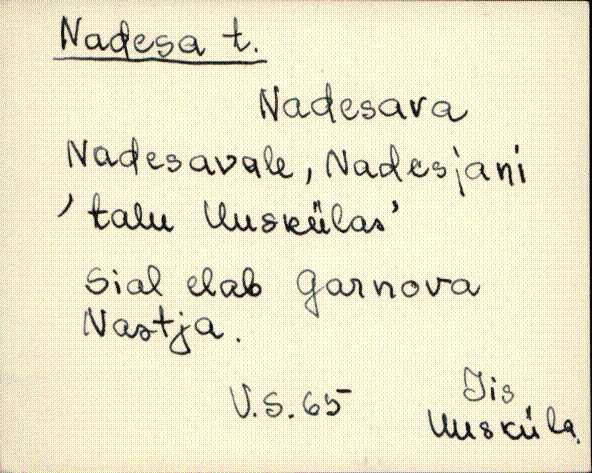 Nadesa t.
Nadesava
Nadesavale, Nadesjani
'talu Uuskülas'
Sial elab Garnova
Nastja.
V.S. 65
Jis
Uusküla.